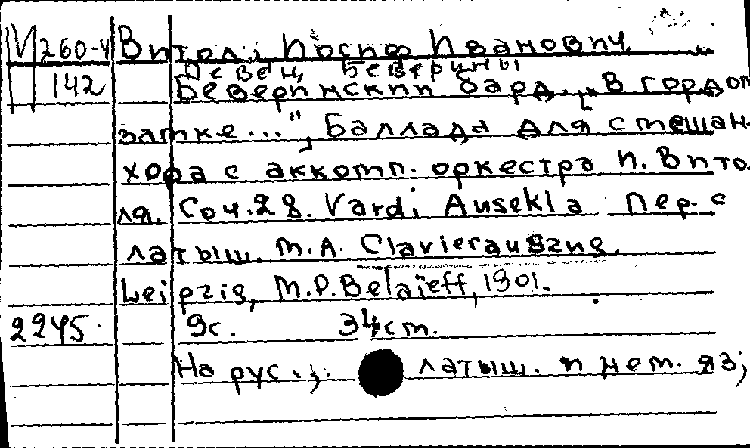 М 260-4 Витол, Иосиф Иванович
П 142 Певец Беверины
Беверинский бард. „В гордом
замке...", Баллада для смешан.
хора с аккомп. оркестра И. Вито
ля. Соч. 28. Vardi Ausekla Пер. с
латыш. М.А. Clavierauszug
Leipzig, M.P. Belaïeff, 1901.
2245. 9с. 34 cm.
На рус., латыш. и нем. яз;